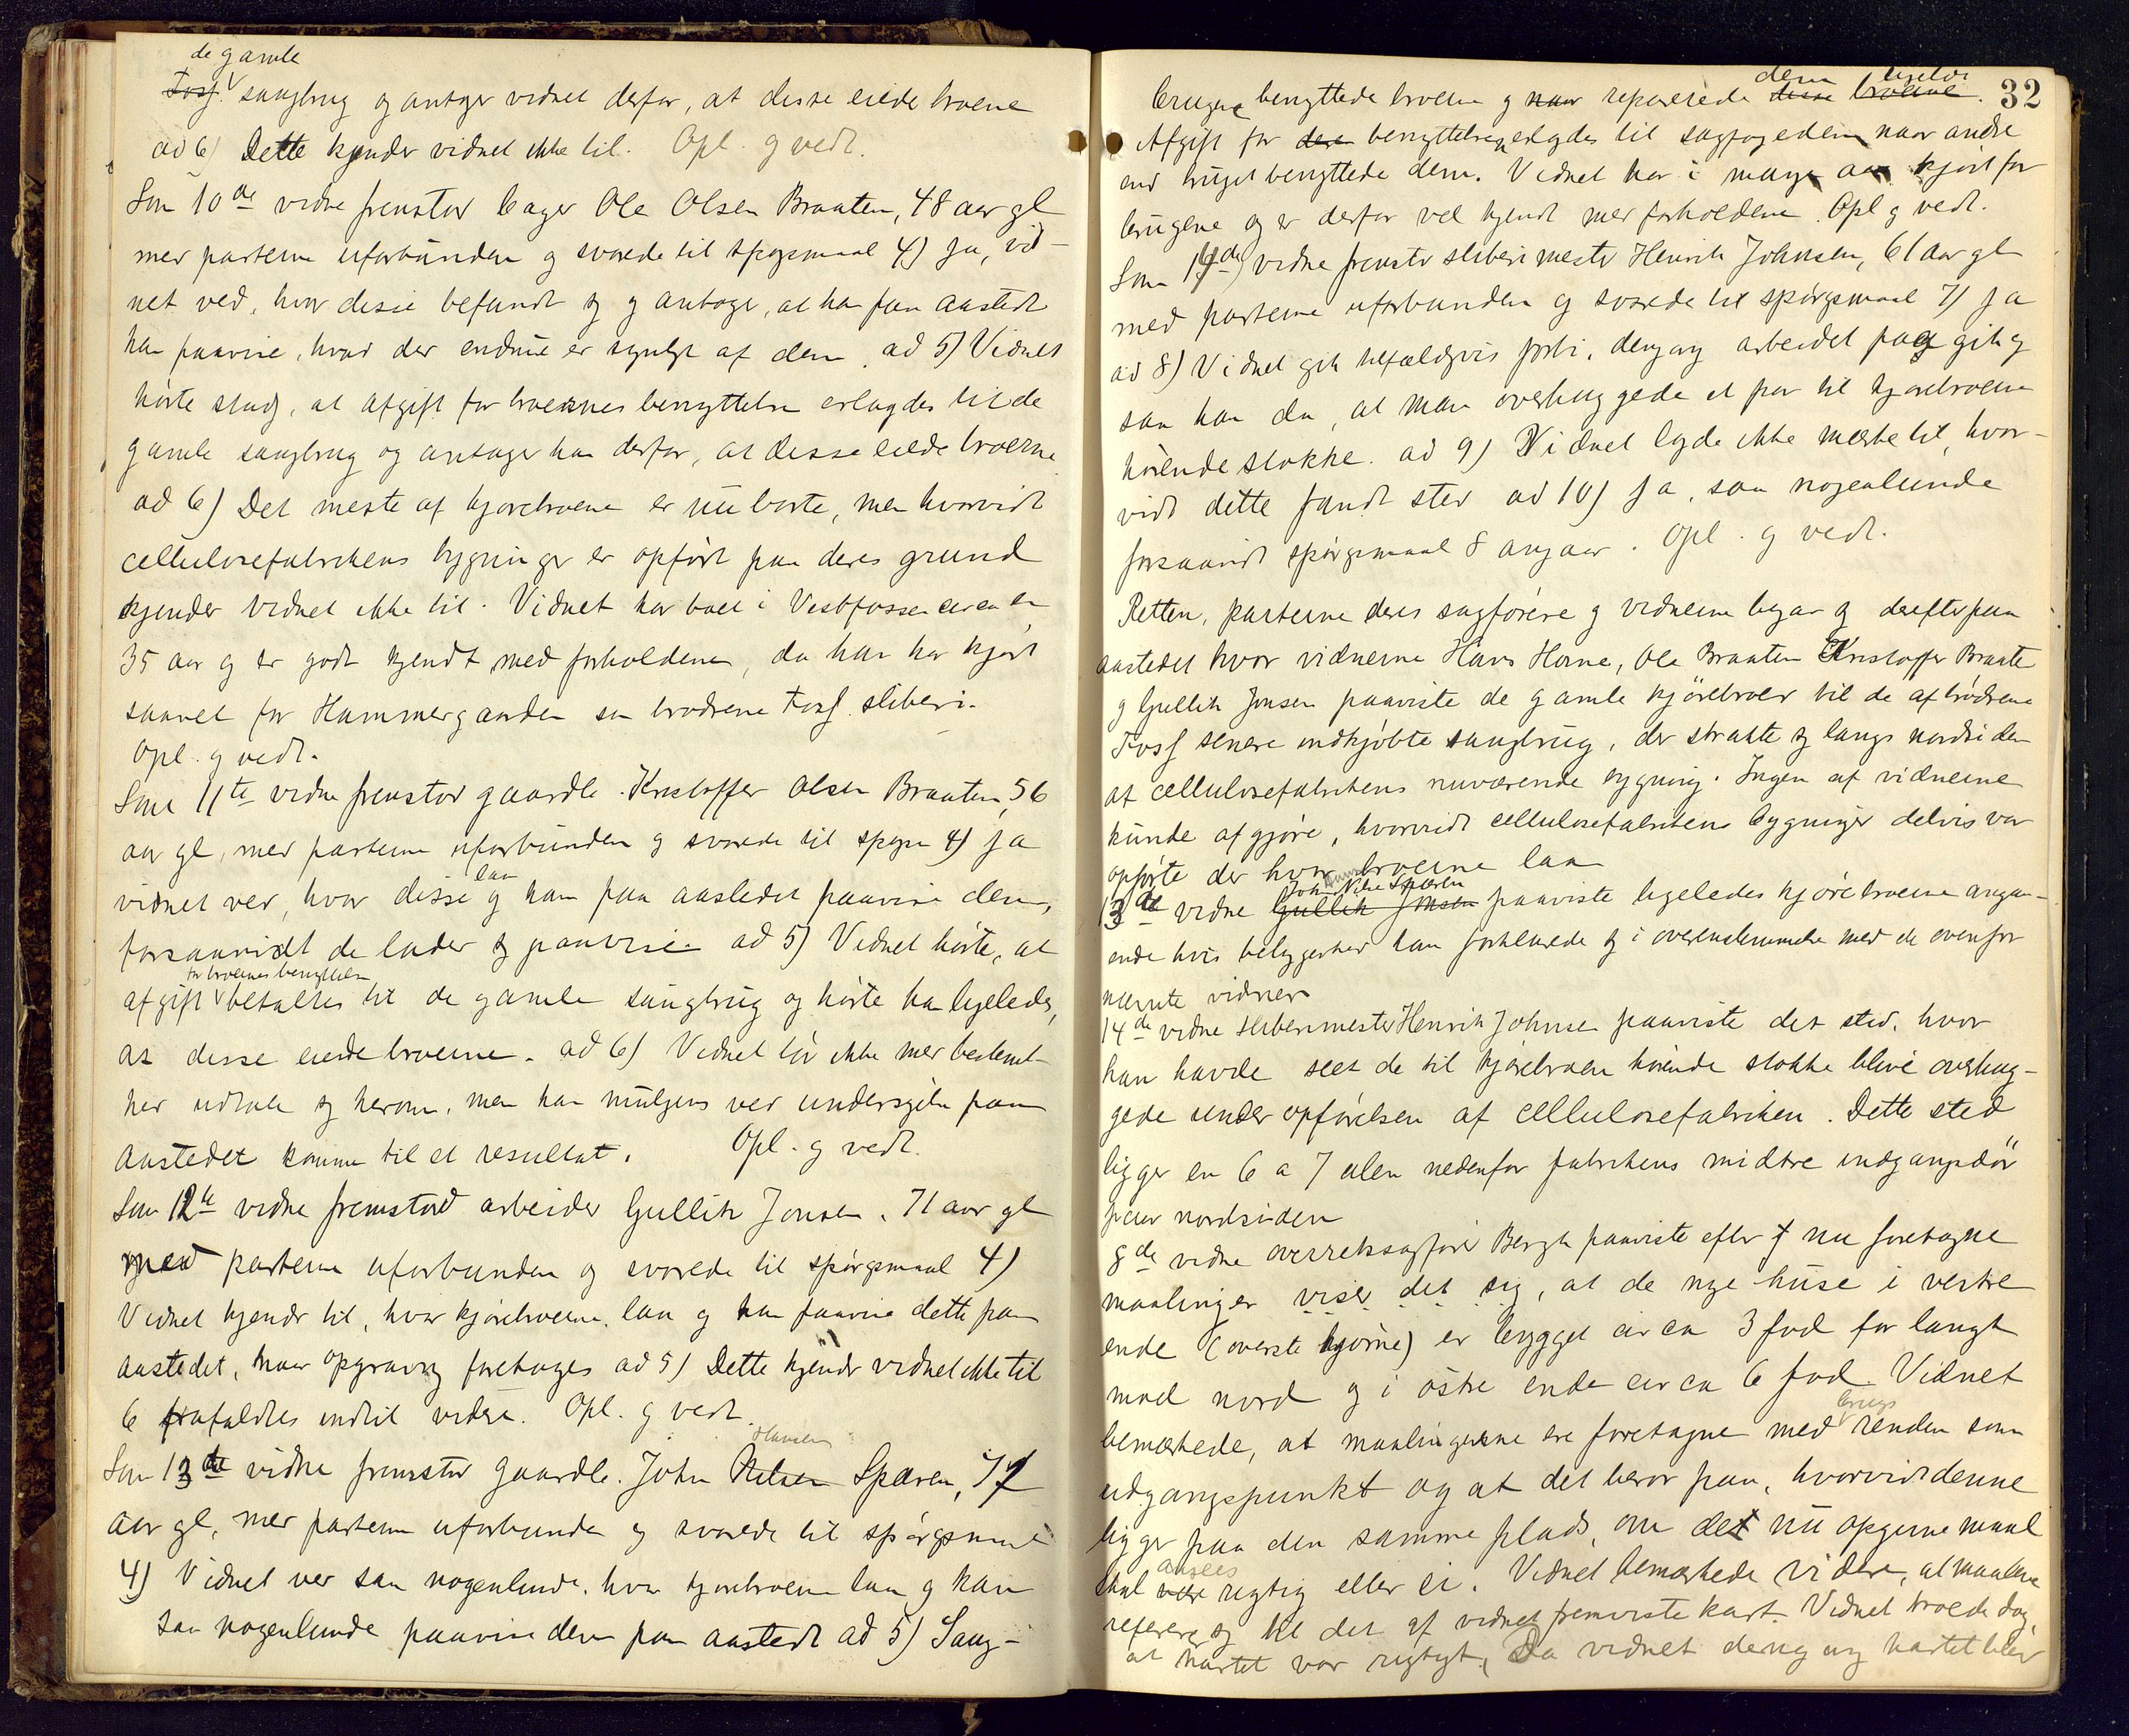 de gamle
Fosf. saugbrug og antager vidnet derfor, at disse eiede broerne
ad 6) Dette kjender vidnet ikke til. Opl. g vedt.
Som 10de vidne fremstod bager Ole Olsen Braaten, 48 aar gl
med parterne uforbunden g svarede til spøgsmaal 4) Ja, vid-
net ved, hvor disse befandt sg g antager, at han paa aastedt
kan paavise, hvad der endnu er synligt af dem. ad 5) Vidnet
hørte stadg, at afgift for broernes benyttelse erlagdes til de
gamle saugbrug og antager han derfor, at disse eiede broerne
ad 6) Det meste af kjørebroene er nu borte, men hvorvidt
cellulosefabrikens bygninger er opført paa deres grund
kjender vidnet ikke til. Vidnet har boet i Vestfossen circa en
35 aar g er godt kjendt med forholdene, da han har kjørt
saavel for Hammergaarden som brødrene Fosf. sliberi.
Opl. g vedt.
Som 11te vidne fremstod gaardbr. Kristoffer Olsen Braaten, 56
aar gl, med parterne uforbunden g svarede til spøgsm 4) Ja
vidnet ved, hvor disse laa g kan paa aastedet paavise dem,
forsaavidt de lader sg paavise. ad 5) Vidnet hørte, at
for broernes benyttelse
afgift betaltes til de gamle saugbrug og hørte han ligeledes,
at disse eiede broerne. ad 6) Vidnet tør ikke med bestemt-
hed udtale sg herom, men kan muligens ved undersøgelse paa
aastedet komme til et resultat. Opl. g vedt.
Som 12te vidne fremstod arbeider Gullik Jonsen, 71 aar gl
med parterne uforbunden og svarede til spørgsmaal 4)
Vidnet kjendr til, hvor kjørebroerne laa g kan paavise dette paa
aastedet, naar opgravng foretages ad 5) Dette kjendr vidnet ikke til
6 frafaldtes indtil videre. Opl. g vedt.
Som 13de vidne fremstod gaardbr. John Nilsen Spæren, 77
aar gl, med parterne uforbunden og svarede til spørgsmaal
4) Vidnet ved saa nogenlunde, hvor kjørebroerne laa g kan
saa nogenlunde paavise dem paa aastedt ad 5) Saug-
32
brugene benyttede broerne g naar reparerede dem ligeledes disse broerne.
Afgift for deres benyttelse erlagdes til sagfogeden naar andre
end bruget benyttede dem. Vidnet har i mange aar kjørt for
brugene og er derfor vel kjendt med forholdene. Opl g vedt.
Som 14de vidne fremstod slibermester Henrik Johnsen, 61 aar gl
med parterne uforbunden g svarede til spørgsmaal 7) Ja
ad 8) Vidnet gik tilfældgvis forbi, dengang arbeidet pagik g
saa han da, at man overhuggede et par til kjørebroerne
hørende stokke. ad 9) Vidnet lagde ikke mærke til, hvor-
vidt dette fandt sted ad 10) Ja, saa nogenlunde
forsaavidt spørgsmaal 8 angaar. Opl. g vedt.
Retten, parterne deres sagførere g vidnerne begav sg derefter paa
aastedet hvor vidnerne Hans Horne, Ole Braaten Kristoffer Braate
g Gullik Jonsen paaviste de gamle kjørebroer til de af brødrene
Fosf senere indkjøbte saugbrug, der strakte sg langs nordsiden
af cellulosefabrikens nuværende bygning. Ingen af vidnerne
kunde afgjøre, hvorvidt cellulosefabrikens bygninger delvis var
opførte der hvor broerne laa
John Nilsen Spæren
13de vidne Gullik Jonsen paaviste ligeledes kjørebroerne angaa-
ende hvis beliggenhed han forklarede sg i overensstemmelse med de ovenfor
nævnte vidner
14de vidne slibermester Henrik Johnsen paaviste det sted, hvor
han havde seet de til kjørebroen hørende stokke blive overhug-
gede under opførelsen af cellulosefabriken. Dette sted
ligger en 6 a 7 alen nedenfor fabrikens midtre indgangsdør
paa nordsiden
8de vidne overretssagfører Bergh paaviste efter nu foretagne
maalinger viser det sig, at de nye huse i vestre
ende (øverste hjørne) er bygget circa 3 fod for langt
mod nord g i østre ende circa 6 fod. Vidnet
bemærkede, at maalingerne ere foretagne med brugsrenden som
udgangspunkt og at det beror paa, hvorvidt denne
ligger paa den samme plads, om det nu opgivne maal
skal ansees være rigtig eller ei. Vidnet bemærkede videre, at maalene
referere sg til det af vidnet fremviste kart. Vidnet troede dog,
at kartet var rigtigt, Da vidnet dengang kartet blev